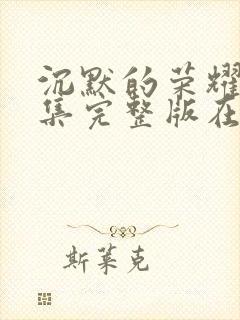 沉默的荣耀
集完整版在
斯莱克